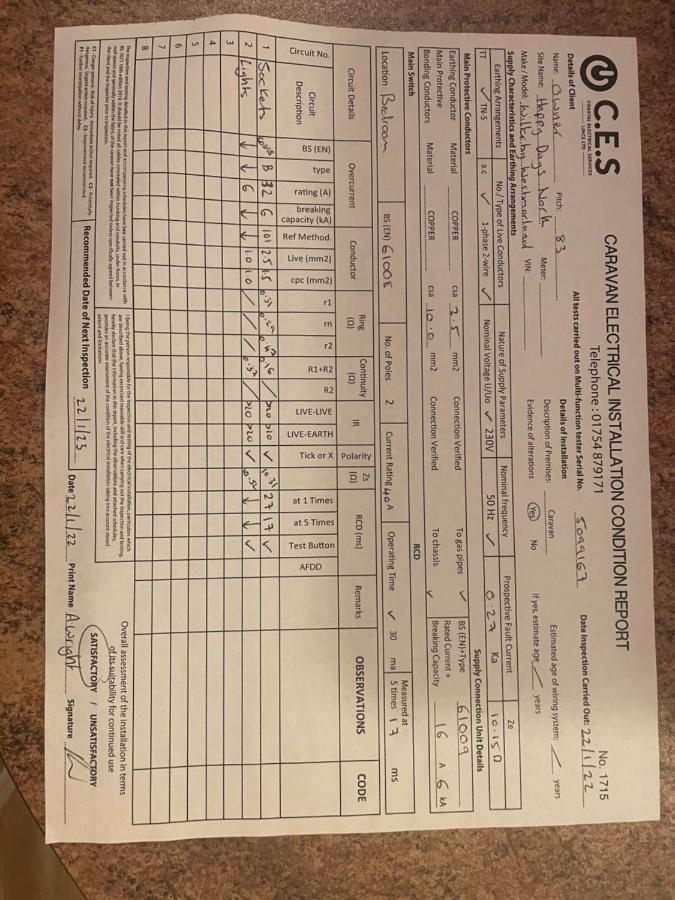 C.E.S
COASTAL ELECTRICAL SERVICES
LINCS LTD
CARAVAN ELECTRICAL INSTALLATION CONDITION REPORT
Telephone : 01754 879171
No. 1715
All tests carried out on Multi-function tester Serial No. 5099167
Date Inspection Carried Out: 22/1/22
Details of Client
Name: Owner Pitch: 83
Site Name: Happy Days North Meter:
Make / Model: Willerby Westmorland VIN:
Details of Installation
Description of Premises: Caravan Estimated age of wiring system: years
Evidence of alterations Yes No If yes, estimate age years
Supply Characteristics and Earthing Arrangements
Earthing Arrangements No / Type of Live Conductors Nature of Supply Parameters Nominal frequency Prospective Fault Current Ze
TT ✓ TN-S a.c ✓ 1-phase 2-wire ✓ Nominal Voltage U/Uo ✓ 230V 50 Hz ✓ 0.27 Ka 10.15 Ω
Main Protective Conductors
Supply Connection Unit Details
Earthing Conductor Material COPPER csa 2.5 mm2 Connection Verified To gas pipes ✓ BS (EN)+Type 61009
Main Protective Bonding Conductors Material COPPER csa 10.0 mm2 Connection Verified To chassis ✓ Rated Current + Breaking Capacity 16 A 6 kA
Main Switch
RCD
Location BS (EN) 61008 No. of Poles 2 Current Rating 40 A Operating Time ✓ 30 ma Measured at 5 times 17 ms
Circuit Details Overcurrent Conductor Ring (Ω) Continuity (Ω) IR Polarity Zs (Ω) RCD (ms) Remarks OBSERVATIONS CODE
Circuit No. Circuit Description BS (EN) type rating (A) breaking capacity (kA) Ref Method. Live (mm2) cpc (mm2) r1 rn r2 R1+R2 R2 LIVE-LIVE LIVE-EARTH Tick or X at 1 Times at 5 Times Test Button AFDD
1 Sockets B 32 6 101 2.5 1.5 >20 >20 ✓ 27 17 ✓
2 Lights ↓ ↓ 6 ↓ ↓ 1.0 1.0 / / / / >20 >20 ✓ ↓ ↓ ✓
3
4
5
6
7
8
Overall assessment of the installation in terms
of its suitability for continued use
SATISFACTORY / UNSATISFACTORY
Recommended Date of Next Inspection 22/1/23 Date 22/1/22 Print Name A Wright Signature